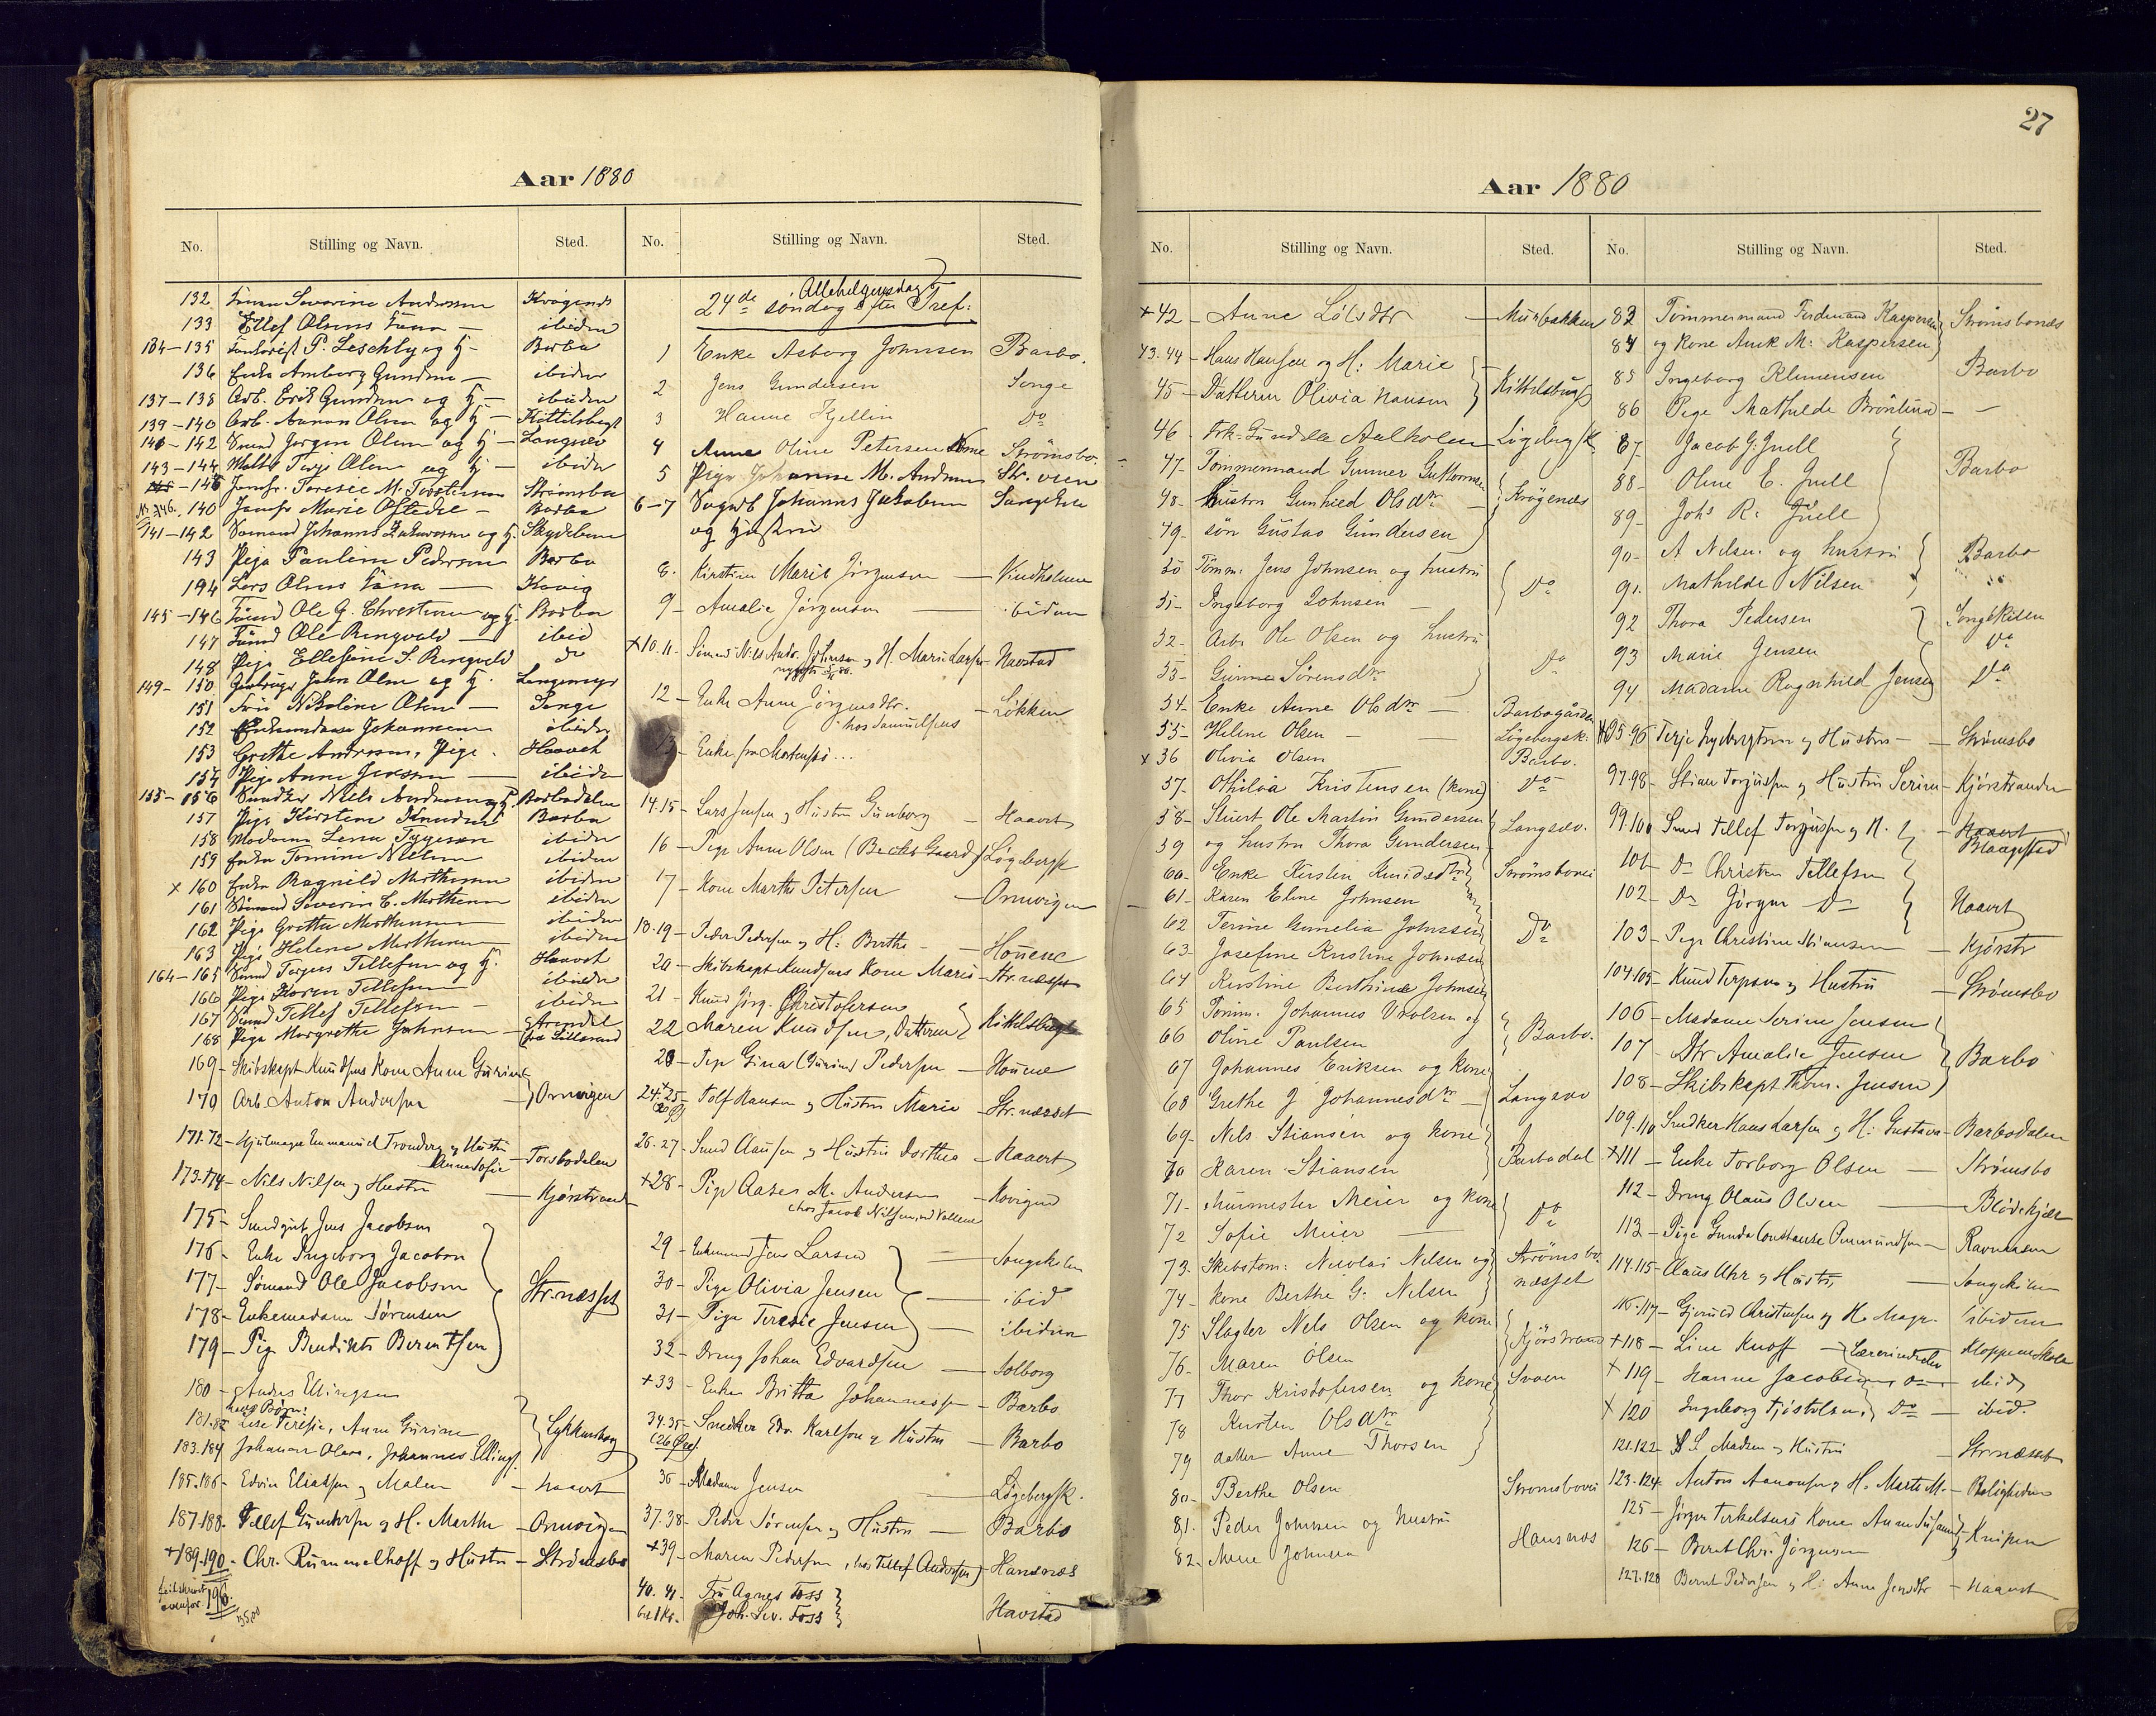 27
Aar 1880
No. Stilling og Navn. Sted.
132 Severine Andersen Krøgenes
133 Ellef Olsens Kone — ibidem
134-135 P. Leschly og H- Barbo
136 Enke Amberg Gundersen — ibidem
137-138 Arb. Erik Gundersen og H- ibidem
139-140 Arb. Aanon Olsen og H- Kittelsbugt
140-142 Smed Jørgen Olsen og H- Langsæv
143-144 Terje Olsen og H- ibidem
145-146 Jomfr. Teresie M. Torstensen Strømsbo
No 146. 140 Jomfr Marie Ofstedal - Barbo
141-142 Sømand Johannes Zakariassen og H. Skydebane
143 Pige Pauline Pedersen Barbo
194 Lars Olsens Kone — Kovig
145-146 Tømd Ole G. Christensen og H. Barbo
147 Tømd Ole Ringvold — ibid
148 Pige Ellefine S. Ringvold do
149-150 John Olsen og H. Langemyr
151 Nikoline Olsen — Songe
152 Enkemadame Johannesen ibidem
153 Grethe Andersen, Pige. Haavet
154 Pige Anne Jensen — ibidem
155-156 Snedker Niels Andersen og H. Barbodalen
157 Pige Kirstine Knudsen Barbo
158 Madame Lena Tygesen ibidem
159 Enke Tomine Nielsen ibidem
× 160 Enke Ragnild Mortensen ibidem
161 Sømand Severin C. Mortensen ibidem
162 Pige Grethe Mortensen ibidem
163 Pige Helene Mortensen ibidem
164-165 Smed Torjus Tellefsen og H. Haavet
166 Pige Karen Tellefsen ibidem
167 Smed Tellef Tellefsen - ibidem
168 Pige Margrethe Johnsen — Arendal
fra Lillesand
169- Skibskapt Knudsens Kone Anne Gurine
170 Arb. Anton Andersen — Ornvigen
171.72- Hjulmager Emmanuel Tronberg og Hustru
Anne Sofie — Torsbodalen
173.174- Nils Nilsen og Hustru — Kjørstrand
175- Smedgut Jens Jacobsen
176- Enke Ingeborg Jacobsen
177- Sømand Ole Jacobsen Str.næsset
178- Enkemadam Sørensen
179- Pige Bendikte Berentsen
180- Andres Ellingsen
hans Børn:
181.82 Lise Teresie, Anne Gurine Lykkensborg
183.184 Johanne Olava, Johannes Ellings.
185.186- Edvin Eliassen og Malen - Haavet
187.188. Tellef Gundersen og H. Marthe - Ornvigen
+189.190. Chr. Rummelhoff og Hustru - Strømsbo
feilskrevet
ovenfor. 196.
35,00
No. Stilling og Navn. Sted.
Allehelgensdag
24de søndag efter Tref:
1 Enke Asborg Johnsen Barbo.
2 Jens Gundersen Songe
3 Hanne Kjellin Do
4 Anne Oline Petersen Kone Strømsbo.
5 Pige Johanne M. Andersen Str. veien
6-7 Johannes Jakobsen Songekilen
og Hustru
8. Kirstine Marie Jørgensen — Vindholmen
9- Amalie Jørgensen — ibidem
×10.11- Sømand Nils Andr. Johnsen og H. Marie Larsen Havstad
12- Enke Anne Jørgensdtr.
hos Samuelsens - Løkken
13- Enke fru Mortensen...
14.15- Lars Jensen og Hustru Gunborg - Haavet
16- Pige Anne Olsen (Becks Gaard) Løgebergsk
17- Kone Marthe Petersen - Ornvigen
18-19- Peder Pedersen og H: Berthe - Houene
20- Skibskapt Knudsens Kone Maren - Str.næsset
21- Knud Jørg. Christofersen
22 Maren Knudsen, Datteren Kittelsbugt
23- Pige Gina (Gurine) Pedersen - Houene
24+25- Tolf Hansen og Hustru Marie - Str.næsset
26.27- Smed Clausen og Hustru Dorthea - Haavet
+28- Pige Aase M. Andersen - Kovigen
hos Jacob Nilsen, ved Vollene
29- Enkemand Jens Larsen — Songekilen
30- Pige Olivia Jensen — ibid
31- Pige Teresie Jensen — ibidem
32- Dreng Johan Edvardsen — Solborg
+33- Enke Britta Johannessen - Barbo
34.35- Snedker Edv. Karlsen og Hustru - Barbo
(26 Øre)
36- Madam Jensen — Løgebergsk.
37.38- Peder Sørensen og Hustru — Barbo
+39- Maren Pedersen (hos Tellef Andersen) - Hansnæs
40. 41. Fru Agnes Foss
Joh. Sev. Foss Havstad
Aar 1880
No. Stilling og Navn. Sted.
×42- Anne Lølsdtr — Murbakken
43.44- Hans Hansen og H: Marie
45- Datteren Olivia Hansen Kittelsbugt
46- Frk. Gundelle Aalholm Løgebergsk.
47- Tømmermand Gunner Guttormsen
48- hustru Gunhild Olsdtr — Krøgenæs
49- søn Gustav Gundersen
50 Tømm: Jens Johnsen og hustru
51- Ingeborg Johnsen — Do
52- Arb. Ole Olsen og hustru
53- Gunne Sørensdtr Do
54- Enke Anne Olsdtr — Barbogården
55- Helene Olsen — Løgebergsk:
×56 Olivia Olsen Barbo.
57- Othilia Kristensen (kone) Do
58- Stuert Ole Martin Gundersen Langsæv.
59 og hustru Thora Gundersen
60- Enke Kirsten Knudsdtr Strømsbovei
61- Karen Eline Johnsen
62 Terine Gunelia Johnsen Do
63- Josefine Kristine Johnsen
64 Kirstine Berthine Johnsen
65 Tømm. Johannes Vrolsen og
66 Oline Paulsen Barbo.
67 Johannes Eriksen og kone
68 Grethe J Johannesdtr — Langsæv
69- Nils Stiansen og kone
70 Karen Stiansen Barbodal
71- Murmester Meier og kone
72 Sofie Meier — Do
73- Skibstøm: Nicolai Nilsen og Strømsbo
74- kone Berthe G. Nilsen næsset
75 Slagter Nils Olsen og kone
76. Maren Olsen Kjørstrand
77 Thor Kristofersen og kone Svaen
78 Kirsten Olsdtr
79 datter Anne Thorsen
80- Berthe Olsen Strømsbovei
81. Peder Johnsen og hustru
82. Anne Johnsen Hansnæs
No. Stilling og Navn. Sted.
83 Tømmermand Ferdinand Kaspersen Strømsbonæs
84 og kone Anne M: Kaspersen
85 Ingeborg Klemensen Barbo
86 Pige Mathilde Brønlund - —
87- Jacob G. Juell
88- Oline E. Juell Barbo
89- Johs R. Juell
90- A Nilsen og hustru Barbo
91. Mathilde Nilsen "
92 Thora Pedersen Songekilen
93 Marie Jensen Do
94 Madame Ragnhild Jensen Do
95.96- Terje og Hustru — Strømsbo
97.98- Stian Torjussen og Hustru Serine - Kjørstranden
99.100 Smed Tellef Torjussen og H. - Haavet
Blaagestad
101- Do Christen Tellefsen
102- Do Jørgen Do Haavet
103- Pige Christine Stiansen - Kjørstr
104.105- Knud Terjesen og Hustru - Strømsbo
106- Madame Serine Jensen
107- Dtr Amalie Jensen Barbo
108- Skibskapt Thom. Jensen
109.110 Snedker Hans Larsen og H: Gustava - Barbodalen
×111- Enke Torborg Olsen — Strømsbo
112- Dreng Olaus Olsen — Blødekjær
113- Pige Gunda Constanse Ommundsen - Ravnaasen
114.115- Claus Uhr og Hustru — Songekilen
116.117- Gjeruld Christensen og H. Magr. ibidem
×118- Line Knoff — Lærerinde Kloppene Skole
×119- Hanne Jacobsen Do — ibid
×120 Ingeborg Tjøstolsen, Do — ibid.
121.122- S. S. Madsen og Hustru - Str.næsset
123.124. Anton Aanonsen og H. Marte M. - Boligheden
125- Jørgen Terkelsens Kone Anne Susanne Knipen
126- Berent Chr. Jørgensen
127.128 Bernt Pedersen og H. Anne Jensdtr - Haavet